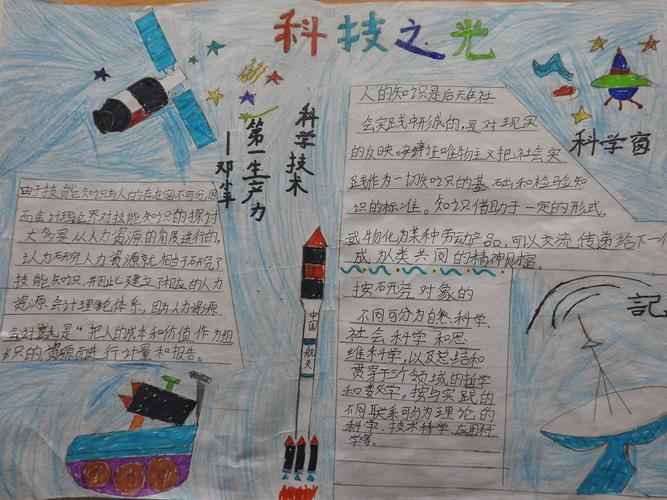 科技之光
科学技术
第一生产力
——邓小平
科学窗
由于技能知识与人的存在密不可分,因
而会计理论界对技能知识的探讨
大多是从人力资源的角度进行的,
认为研究人力资源就相当于研究了
技能知识,并因此建立了相应的人力
资源会计理论体系。因为人力资源
会计是“把人的成本和价值作为组
织的资源而进行计量和报告。
人的知识是后天在社
会实践中形成的,是对现实
的反映。辩证唯物主义把社会实
践作为一切知识的基础和检验知
识的标准。知识借助于一定的形式,
或物化为某种劳动产品,可以交流传递给下一
成为人类共同的精神财富。
按研究对象的
不同可分为自然科学、
社会科学和思
维科学,以及总结和
贯穿于3个领域的哲学
和数学。按与实践的
不同联系可分为理论的
科学、技术科学、应用科
学等。
中国
航天
记